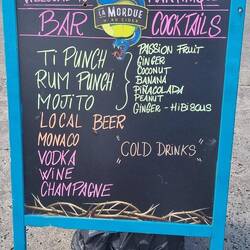 BAR
LA MORDUE
COCKTAILS
TI PUNCH
RUM PUNCH
MOJITO
PASSION FRUIT
GINGER
COCONUT
BANANA
PIÑACOLADA
PEANUT
GINGER - HIBISCUS
LOCAL BEER
MONACO
VODKA
WINE
CHAMPAGNE
"COLD DRINKS"